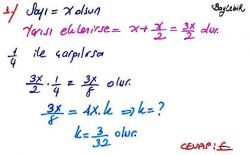 Sayı = x olsun
Yarısı eklenirse = x + x/2 = 3x/2 olur.
1/4 ile çarpılırsa
3x/2 . 1/4 = 3x/8 olur.
3x/8 = 4x.k ⇒ k = ?
k = 3/32 olur.
CEVAP: E